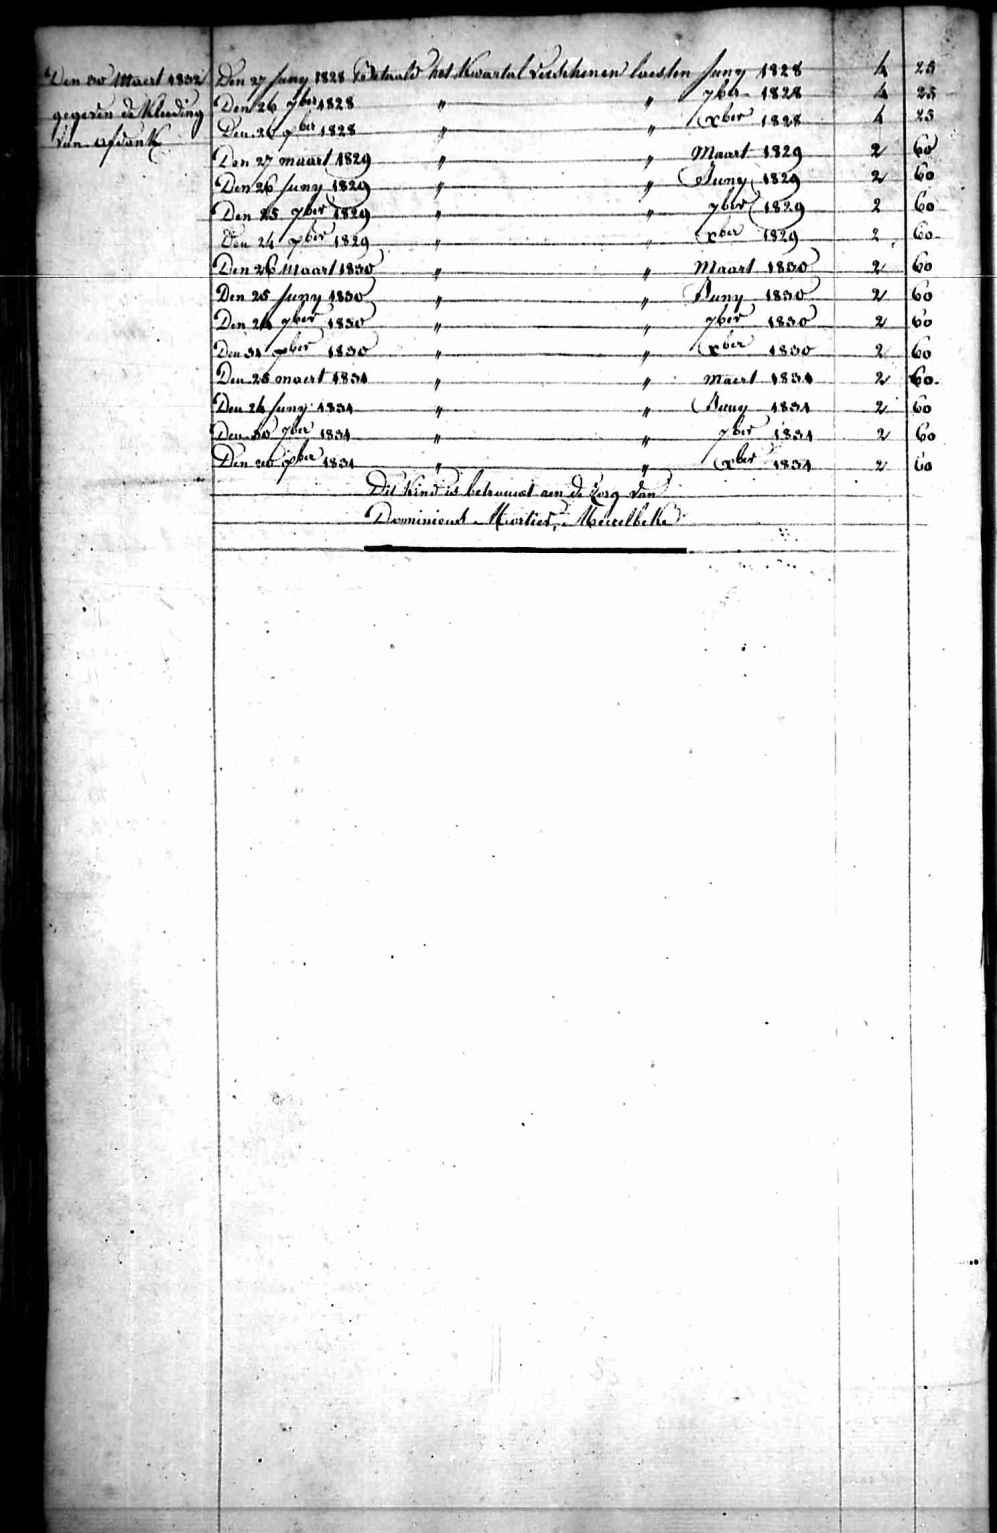 Den 30 Maert 1832
gegeven de kleeding
van afdank
Den 27 Juny 1828 Betaald het kwartal verschenen laesten Juny 1828 4 25
Den 26 7ber 1828 " " 7ber 1828 4 25
Den 26 xber 1828 " " xber 1828 4 25
Den 27 maart 1829 " " Maart 1829 2 60
Den 26 Juny 1829 " " Juny 1829 2 60
Den 25 7ber 1829 " " 7ber 1829 2 60
Den 24 xber 1829 " " xber 1829 2 60
Den 26 Maart 1830 " " Maart 1830 2 60
Den 25 Juny 1830 " " Juny 1830 2 60
Den 24 7ber 1830 " " 7ber 1830 2 60
Den 31 xber 1830 " " xber 1830 2 60
Den 25 maert 1831 " " Maert 1831 2 60
Den 24 Juny 1831 " " Juny 1831 2 60
Den 30 7ber 1831 " " 7ber 1831 2 60
Den 30 xber 1831 " " xber 1831 2 60
Dit kind is betrouwt aen de zorg van
Dominicus Mortier, Meirelbeke